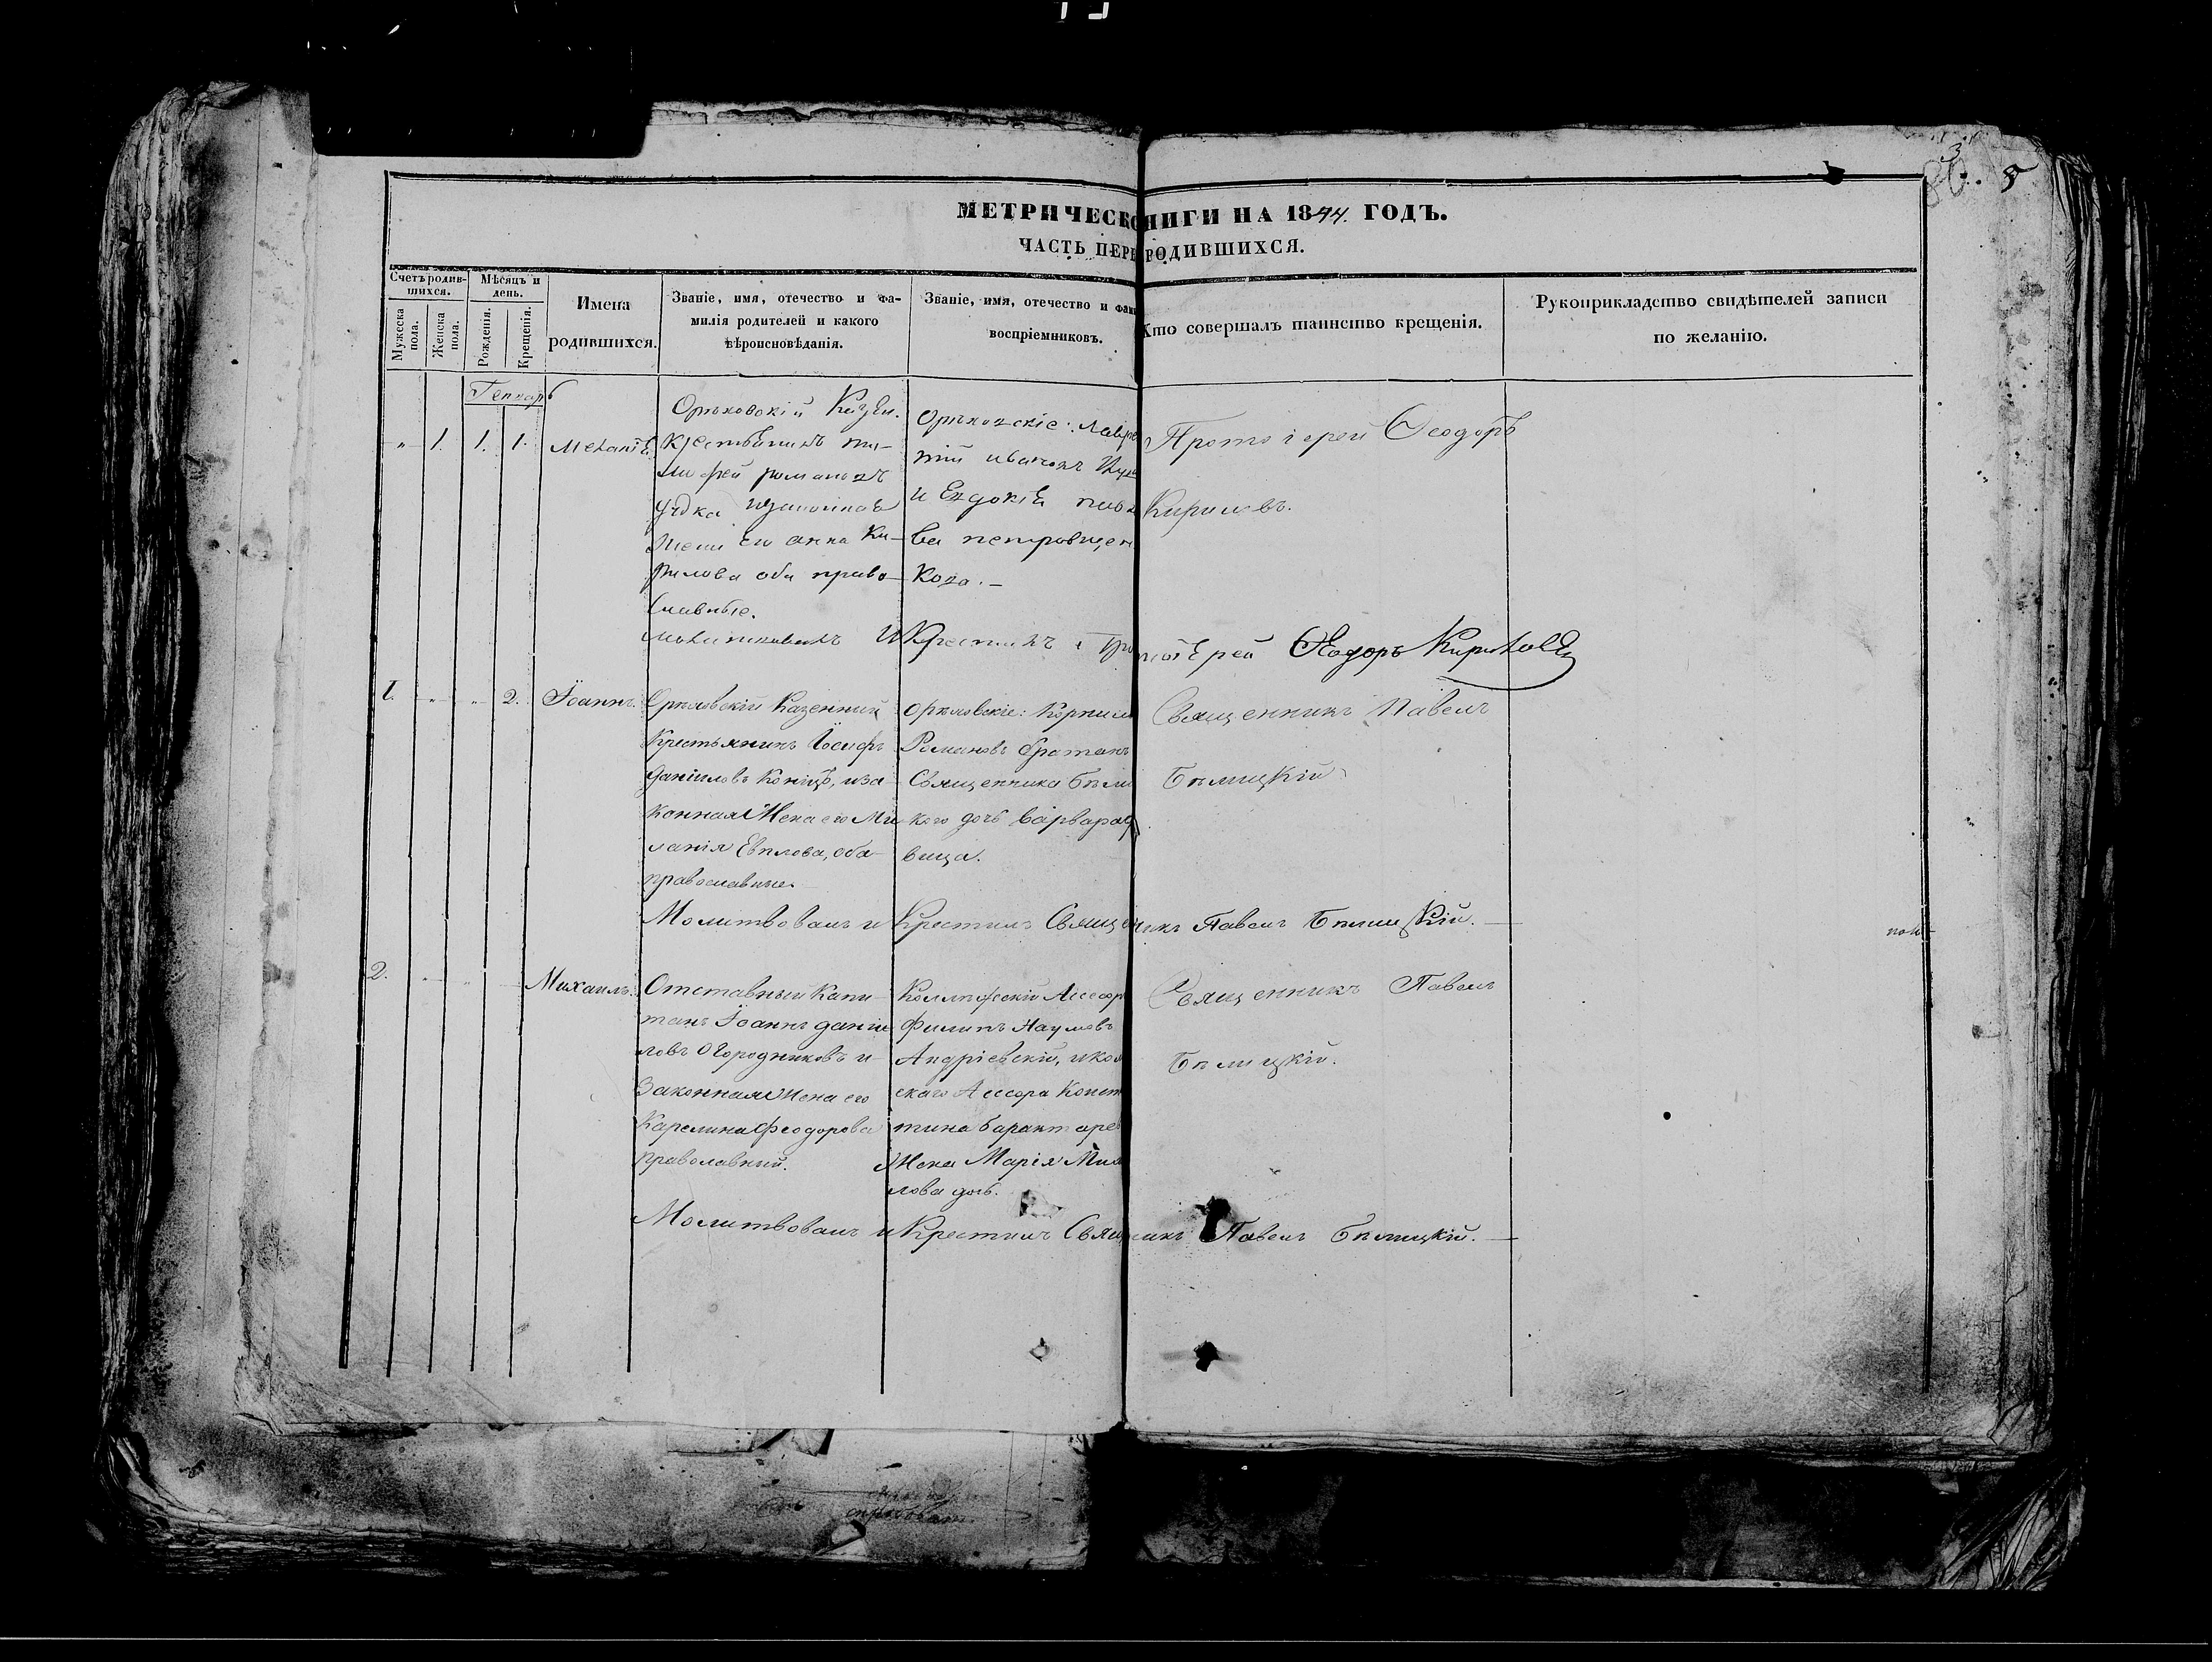 3
5
МЕТРИЧЕСКО НИГИ НА 1844. ГОДЪ.
ЧАСТЬ ПЕРВ РОДИВШИХСЯ.
Счетъ родив-
шихся.
Мужеска пола.
Женска пола.
Мѣсяцъ и
день.
Рожденія.
Крещенія.
Имена
родившихся.
Званіе, имя, отечество и фа-
милія родителей и какого
вѣроисповѣданія.
Званіе, имя, отечество и фам
воспріемниковъ.
Кто совершалъ таинство крещенія.
Рукоприкладство свидѣтелей записи
по желанію.
Генварь
" 1. 1. 1.
Орѣховскій Казен.
Крестьянинъ ти-
мофей романовъ
жена его анна Ки-
рилова оба право-
славные.
Орѣховскіе: Лавре
тій ивановъ
и Евдокія
ва петровщен
кова.
Протоіерей Ѳеодоръ
Кириловъ.
молитвовалъ и Крестилъ Протоіерей Ѳеодоръ Кириловъ
1. " " 2. Іоаннъ.
Орѣховскій Казенный
Крестьянинъ Іосифъ
Даніиловъ, и за
конная Жена его Ме
ланія Евплова, оба
православные.
Орѣховскіе: Корнил
Романовъ братанъ
Священника Бѣли
каго дочь Варвара
вица.
Священникъ Павелъ
Бѣлицкій
Молитвовалъ и Крестилъ Священикъ Павелъ Бѣлицкій.
2. " " Михаилъ.
Отставный Капи-
танъ Іоаннъ Даніи
ловъ Огородниковъ и
Законная Жена его
Феодорова
православный.
Ассесор
Филипъ Наумовъ
Андріевскій, и кол
скаго Ассесора Конст
тина
Жена Марія Мих
лова дочь.
Священникъ Павелъ
Бѣлицкій.
Молитвовалъ и Крестилъ Свящ никъ Павелъ Бѣлицкій.